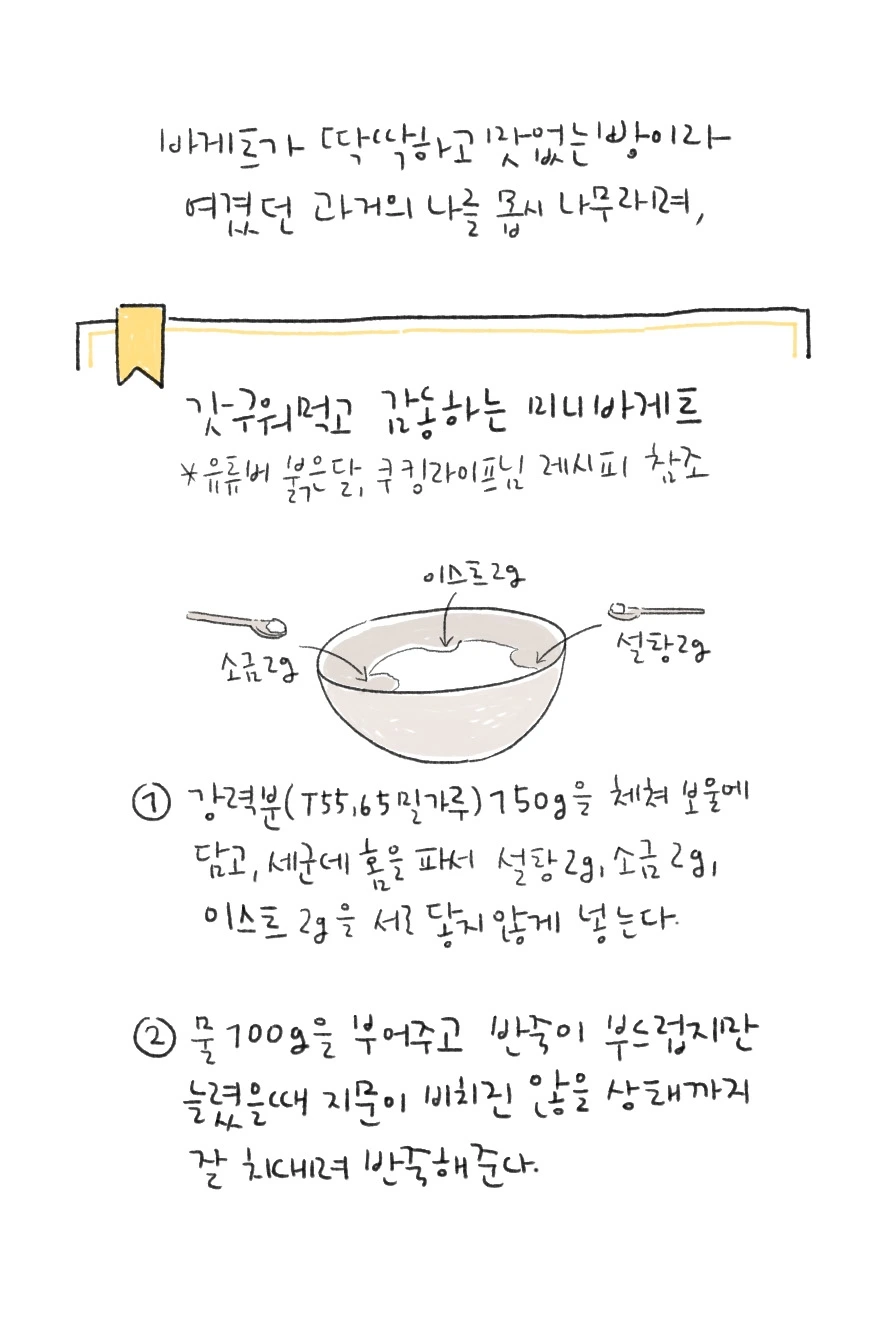 바게트가 딱딱하고 맛없는 빵이라
여겼던 과거의 나를 몹시 나무라며,
갓 구워먹고 감동하는 미니바게트
*유튜버 붉은달, 쿠킹라이프님 레시피 참조
이스트2g
소금2g
설탕2g
① 강력분(T55,65밀가루)150g을 체쳐 보울에
담고, 세군데 홈을 파서 설탕2g, 소금2g,
이스트 2g을 서로 닿지않게 넣는다.
② 물100g을 부어주고 반죽이 부드럽지만
눌렀을때 지문이 비치진 않을 상태까지
잘 치대며 반죽해준다.